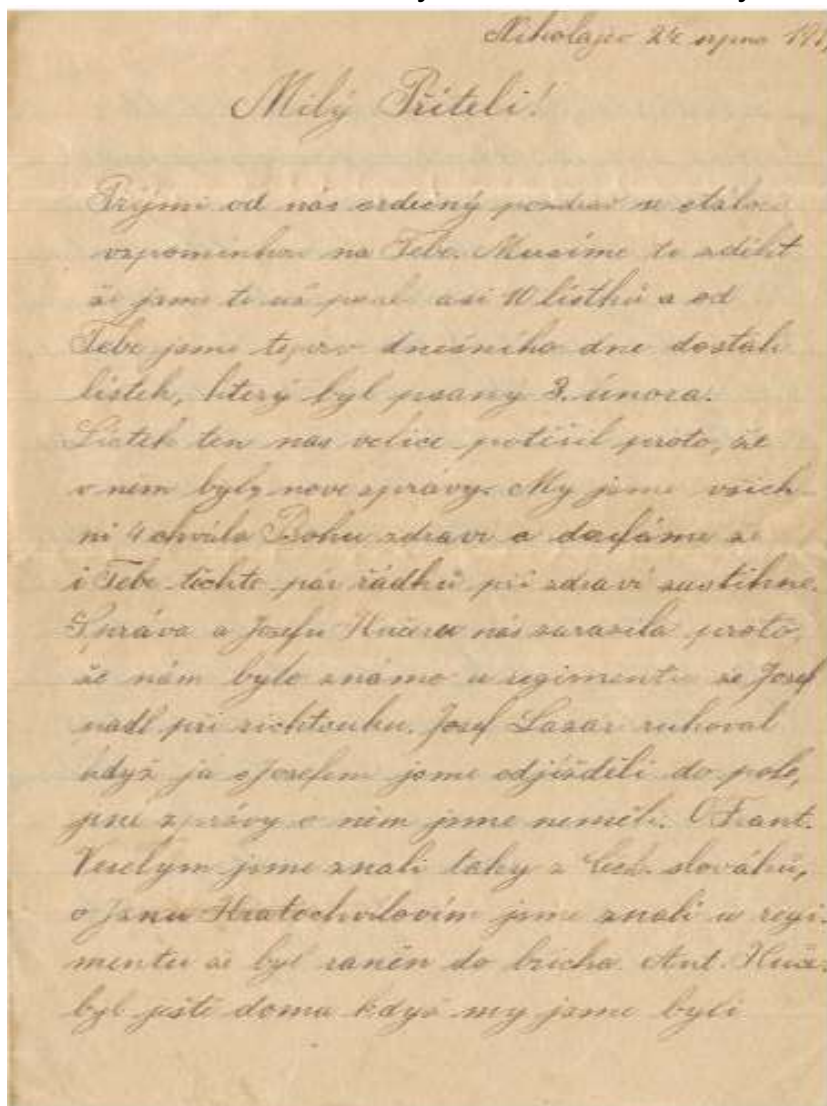 Nikolajev 24 srpna 191
Milý Příteli!
Přijmi od nás srdečný pozdrav se stálou
vzpomínkou na Tebe. Musíme ti sdělit
že jsme ti už psali asi 10 lístků a od
Tebe jsme teprv dnešního dne dostali
lístek, který byl psaný 3. února.
Lístek ten nás velice potěšil proto, že
v něm byly nove zprávy. My jsme všich-
ni 4 chvála Bohu zdravi a doufáme že
i Tebe těchto pár řádků při zdraví zastihne.
Zpráva o Josefu Kučeru nás zarazila proto,
že nám bylo známo u regimentu že Josef
padl při
Josef Lazar rukoval
když ja s Josefem jsme odjížděli do pole,
jiné zprávy o něm jsme neměli. O Frant.
Veselým jsme znali taky z Čech. slováků,
o Janu Kratochvilovím jsme znali u regi-
mentu že byl raněn do břicha. Ant. Kuče
byl ještě doma když my jsme byli